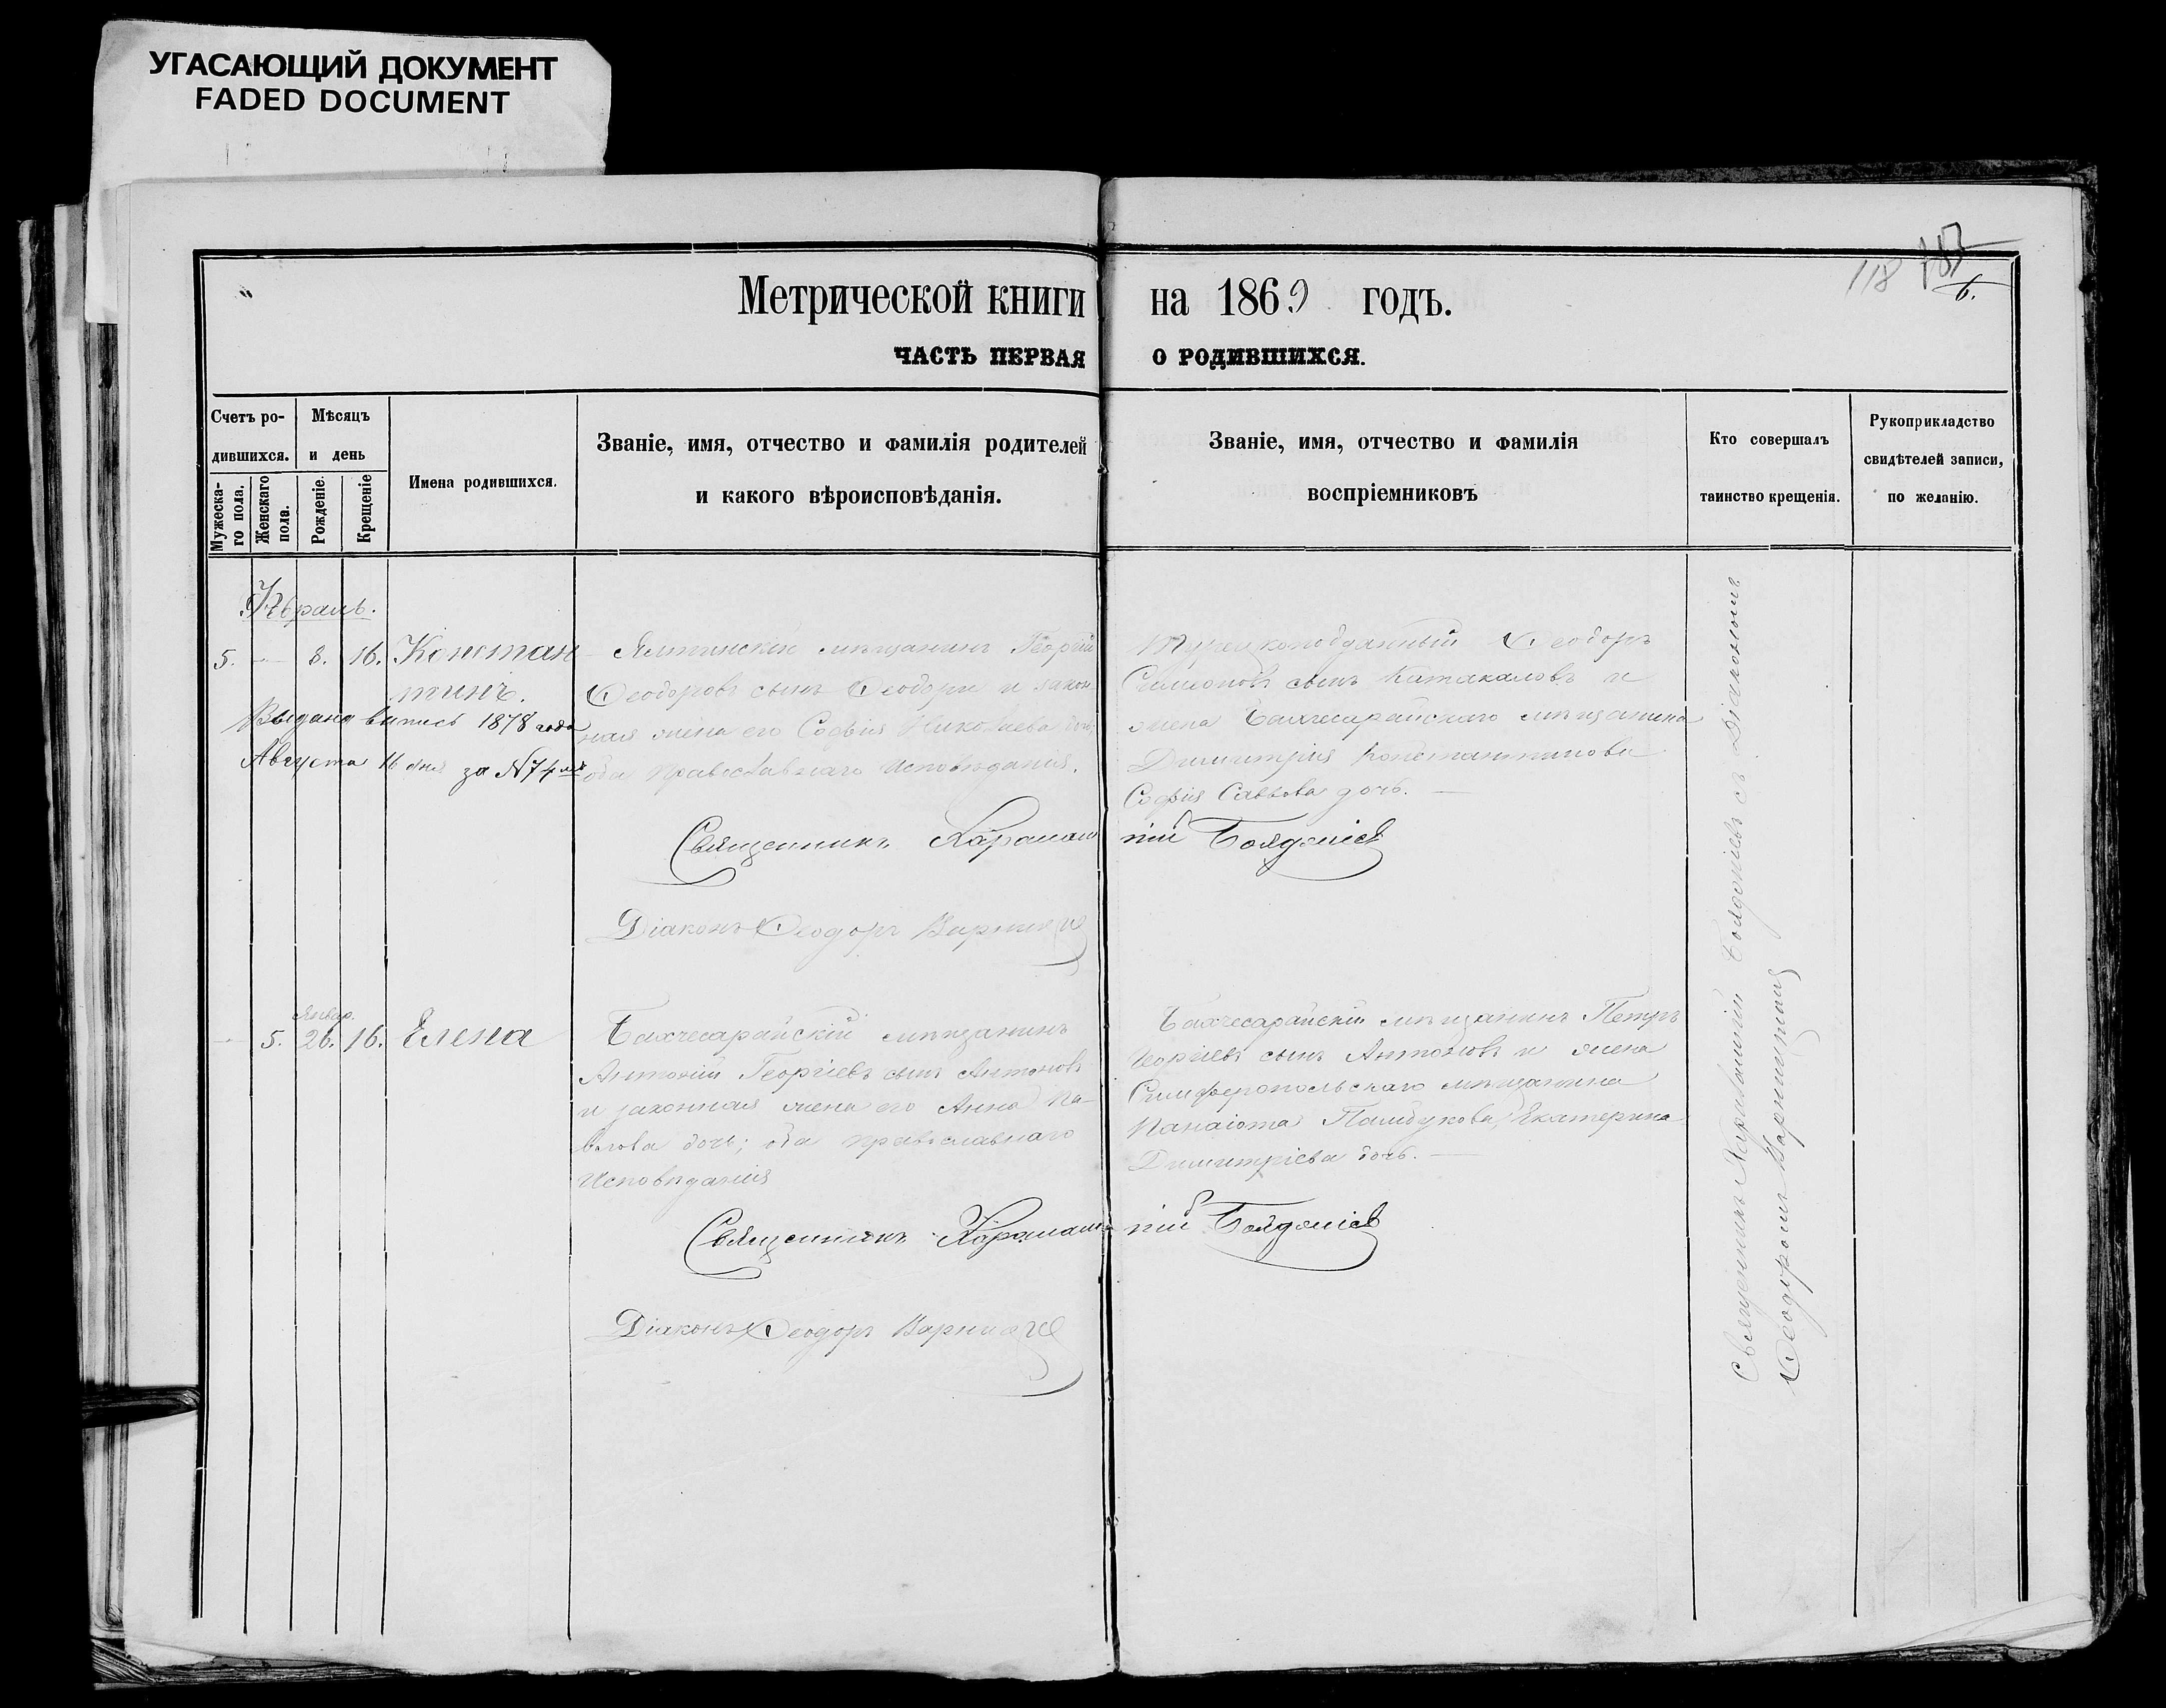 УГАСАЮЩИЙ ДОКУМЕНТ
FADED DOCUMENT
118
6.
Метрической книги на 1869 годъ.
ЧАСТЬ ПЕРВАЯ О РОДИВШИХСЯ.
Счетъ ро-
дившихся.
Мужеска-
го пола.
Женскаго
пола.
Мѣсяцъ
и день
Рожденіе.
Крещеніе
Имена родившихся.
Званіе, имя, отчество и фамилія родителей
и какого вѣроисповѣданія.
Званіе, имя, отчество и фамилія
воспріемниковъ
Кто совершалъ
таинство крещенія.
Рукоприкладство
свидѣтелей записи,
по желанію.
5. — 8. 16. Констан
тинъ.
Выдана выпись 1878 года
Августа 16 дня за №74
Ялтинскій мѣщанинъ Георгій
Ѳеодоровъ сынъ Ѳеодори и закон-
ная жена его Софія Николаева дочь
оба православнаго исповѣданія.
Турецкоподданный Ѳеодоръ
Симеоновъ сынъ Катакаловъ и
жена Бахчесарайскаго мѣщанина
Димитрія Константинова
Софія Саввова дочь. —
Священникъ Харлампій Бояджіевъ
Діаконъ Ѳеодоръ
Январ.
— 5. 26. 16. Елена
Бахчесарайскій мѣщанинъ
Антоній Георгіевъ сынъ Антоновъ
и законная жена его Анна Па-
влова дочь; оба православнаго
Исповѣданія
Бахчесарайскій мѣщанинъ Петръ
Георгіевъ сынъ Антоновъ и жена
Симферопольскаго мѣщанина
Панаіота Памбукова Екатерина
Димитріева дочь. —
Священникъ Харлампій Бояджіевъ
Діаконъ Ѳеодоръ
Священникъ Харлампій Бояджіевъ съ Діакономъ
Ѳеодоромъ